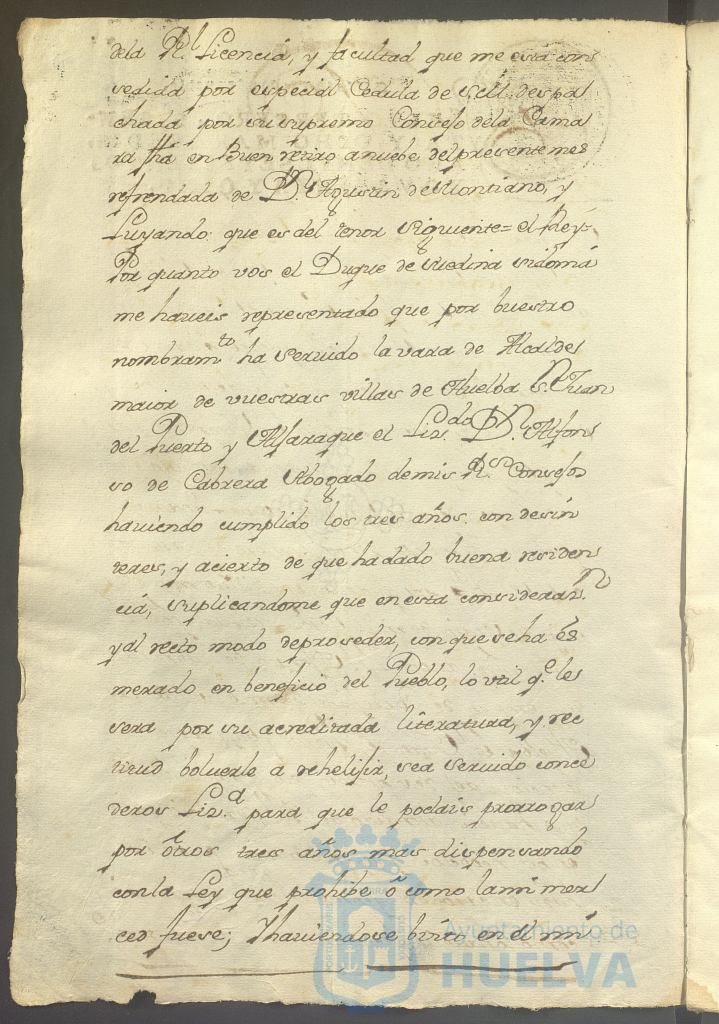 dela Rl Licencia, y facultad que me está con
sedida por especial Cedula de S.M. despa
chada por su supremo Consejo dela Cama
ra fha en Buen retiro a nuebe del presente mes
refrendada de Dn. Agustin de Montiano, y
Luyando que es del tenor siguiente = el Rey =
Por quanto vos el Duque de Medina sidonia
me haueis representado que por buestro
nombramto. ha seruido la vara de Alcalde
maior de vuestras villas de Huelba Sn. Juan
del Puerto y Aljaraque el Lizdo. Dn. Alfon
so de Cabrera Abogado de mis Rs. Consejos
hauiendo cumplido los tres años con desin
teres, y acierto de que ha dado buena residen
cia, suplicandome que en esta considerazn.
y al recto modo de proseder, con que se ha es
merado en beneficio del Pueblo, lo vtil qe. les
sera por su acreditada literatura, y rec
titud boluerle a rehelijir, sea seruido conce
deros Liza. para que le podais prorrogar
por otros tres años mas dispensando
con la Ley que prohibe ô como la mi mer
ced fuese; Y hauiendose bisto en el mi
Ayuntamiento de
HUELVA